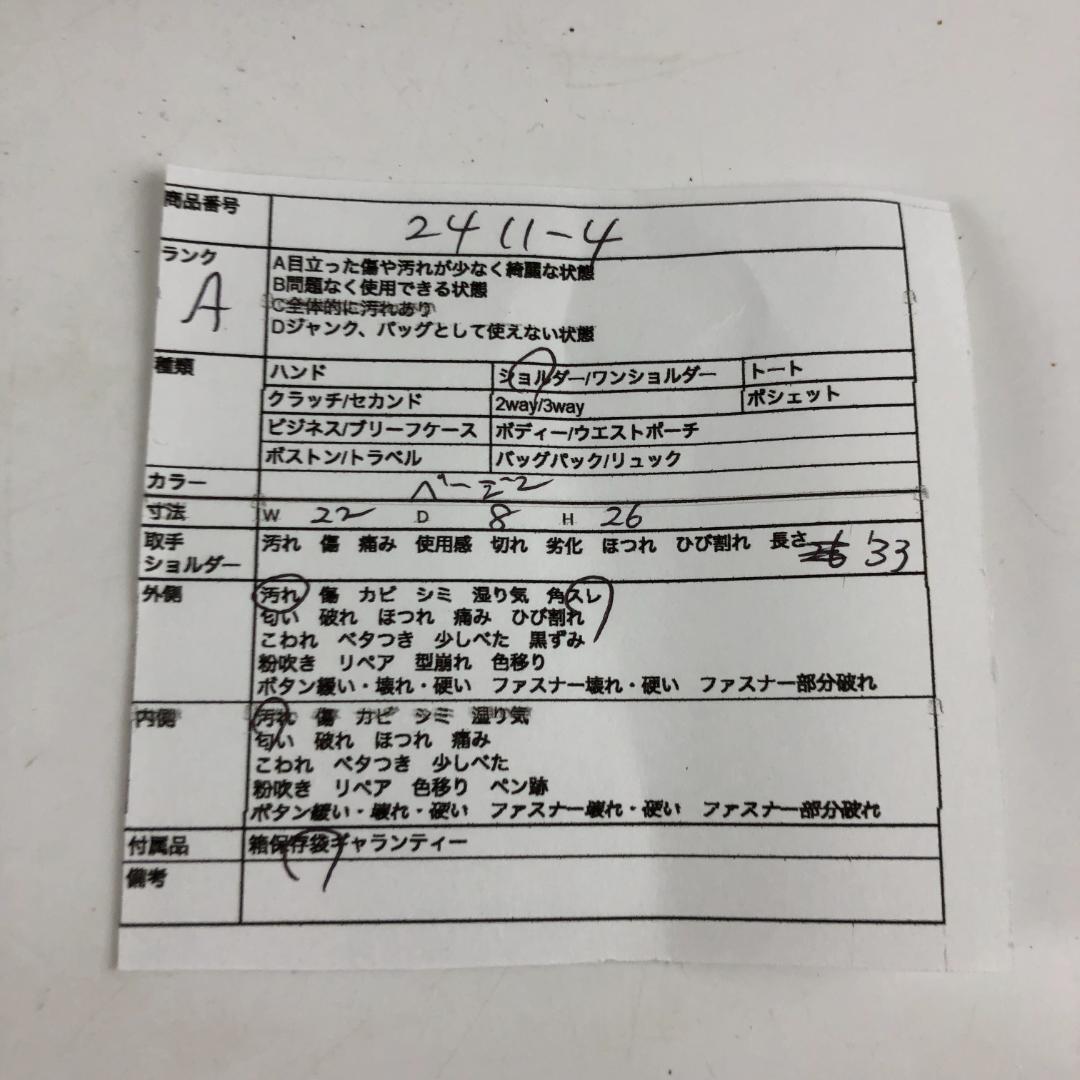 商品番号 2411-4
ランク A
A目立った傷や汚れが少なく綺麗な状態
B問題なく使用できる状態
C全体的に汚れあり
Dジャンク、バッグとして使えない状態
種類 ハンド ショルダー/ワンショルダー トート
クラッチ/セカンド 2way/3way ポシェット
ビジネス/ブリーフケース ボディー/ウエストポーチ
ボストン/トラベル バッグパック/リュック
カラー ベージュ
寸法 W 22 D 8 H 26
取手 汚れ 傷 痛み 使用感 切れ 劣化 ほつれ ひび割れ 長さ 33
ショルダー
外側 汚れ 傷 カビ シミ 湿り気 角スレ
匂い 破れ ほつれ 痛み ひび割れ
こわれ ベタつき 少しべた 黒ずみ
粉吹き リペア 型崩れ 色移り
ボタン緩い・壊れ・硬い ファスナー壊れ・硬い ファスナー部分破れ
内側 汚れ 傷 カビ シミ 湿り気
匂い 破れ ほつれ 痛み
こわれ ベタつき 少しべた
粉吹き リペア 色移り ペン跡
ボタン緩い・壊れ・硬い ファスナー壊れ・硬い ファスナー部分破れ
付属品 箱保存袋ギャランティー
備考